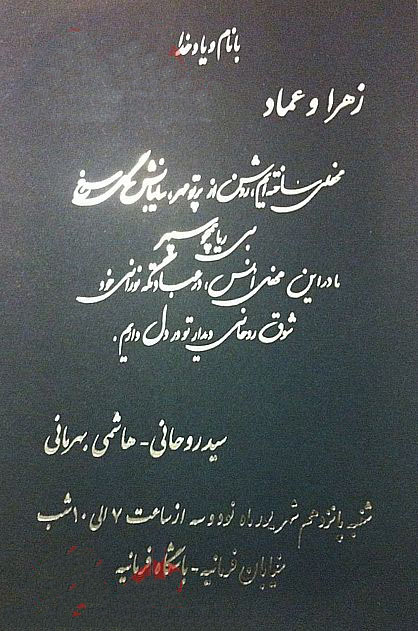 با نام و یاد خدا
زهرا و عماد
محفلی ساخته‌ایم، روشن از پرتو مهر، سایبانش گل سرخ
بی ریا چو سپهر
ما در این محفل انس، در عبادتگه نورانی خود
شوق روحانی دیدار تو در دل داریم.
سید روحانی - هاشمی بهرمانی
شنبه پانزدهم شهریور ماه نود و سه از ساعت ۷ الی ۱۰ شب
خیابان فرمانیه - باشگاه فرمانیه